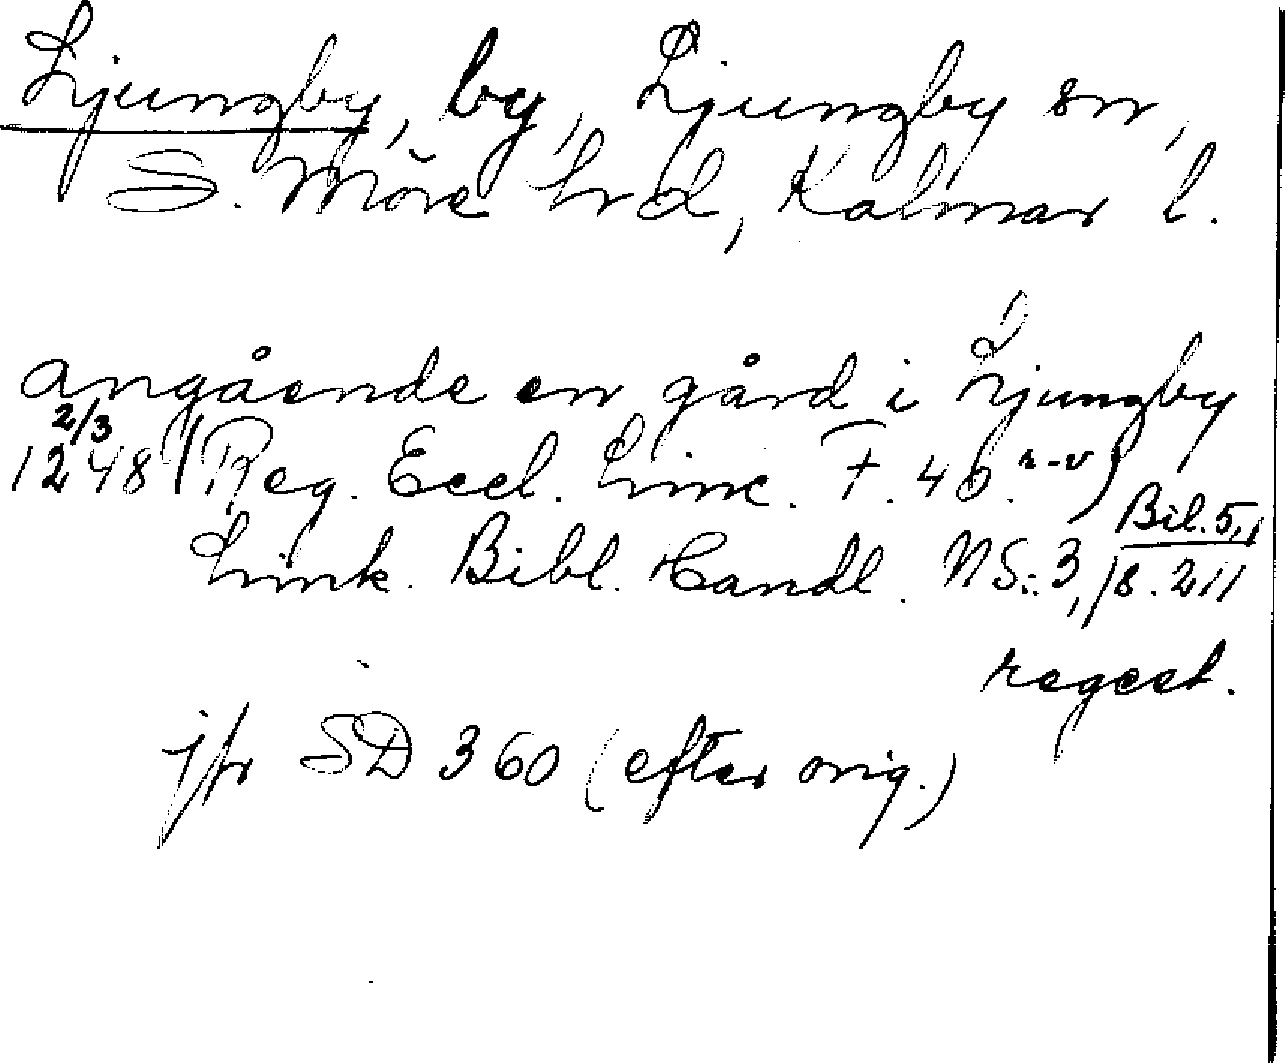 Ljungby, by, Ljungby sn,
S. Möre hrd, Kalmar l.
angående en gård i Ljungby
2/3
1248 (Reg. Eccl. Linc. F. 40. r-v)
Bil. 5,
Link. Bibl. Handl. NS: 3, s. 211
regest.
jfr SD 360 (efter orig.)